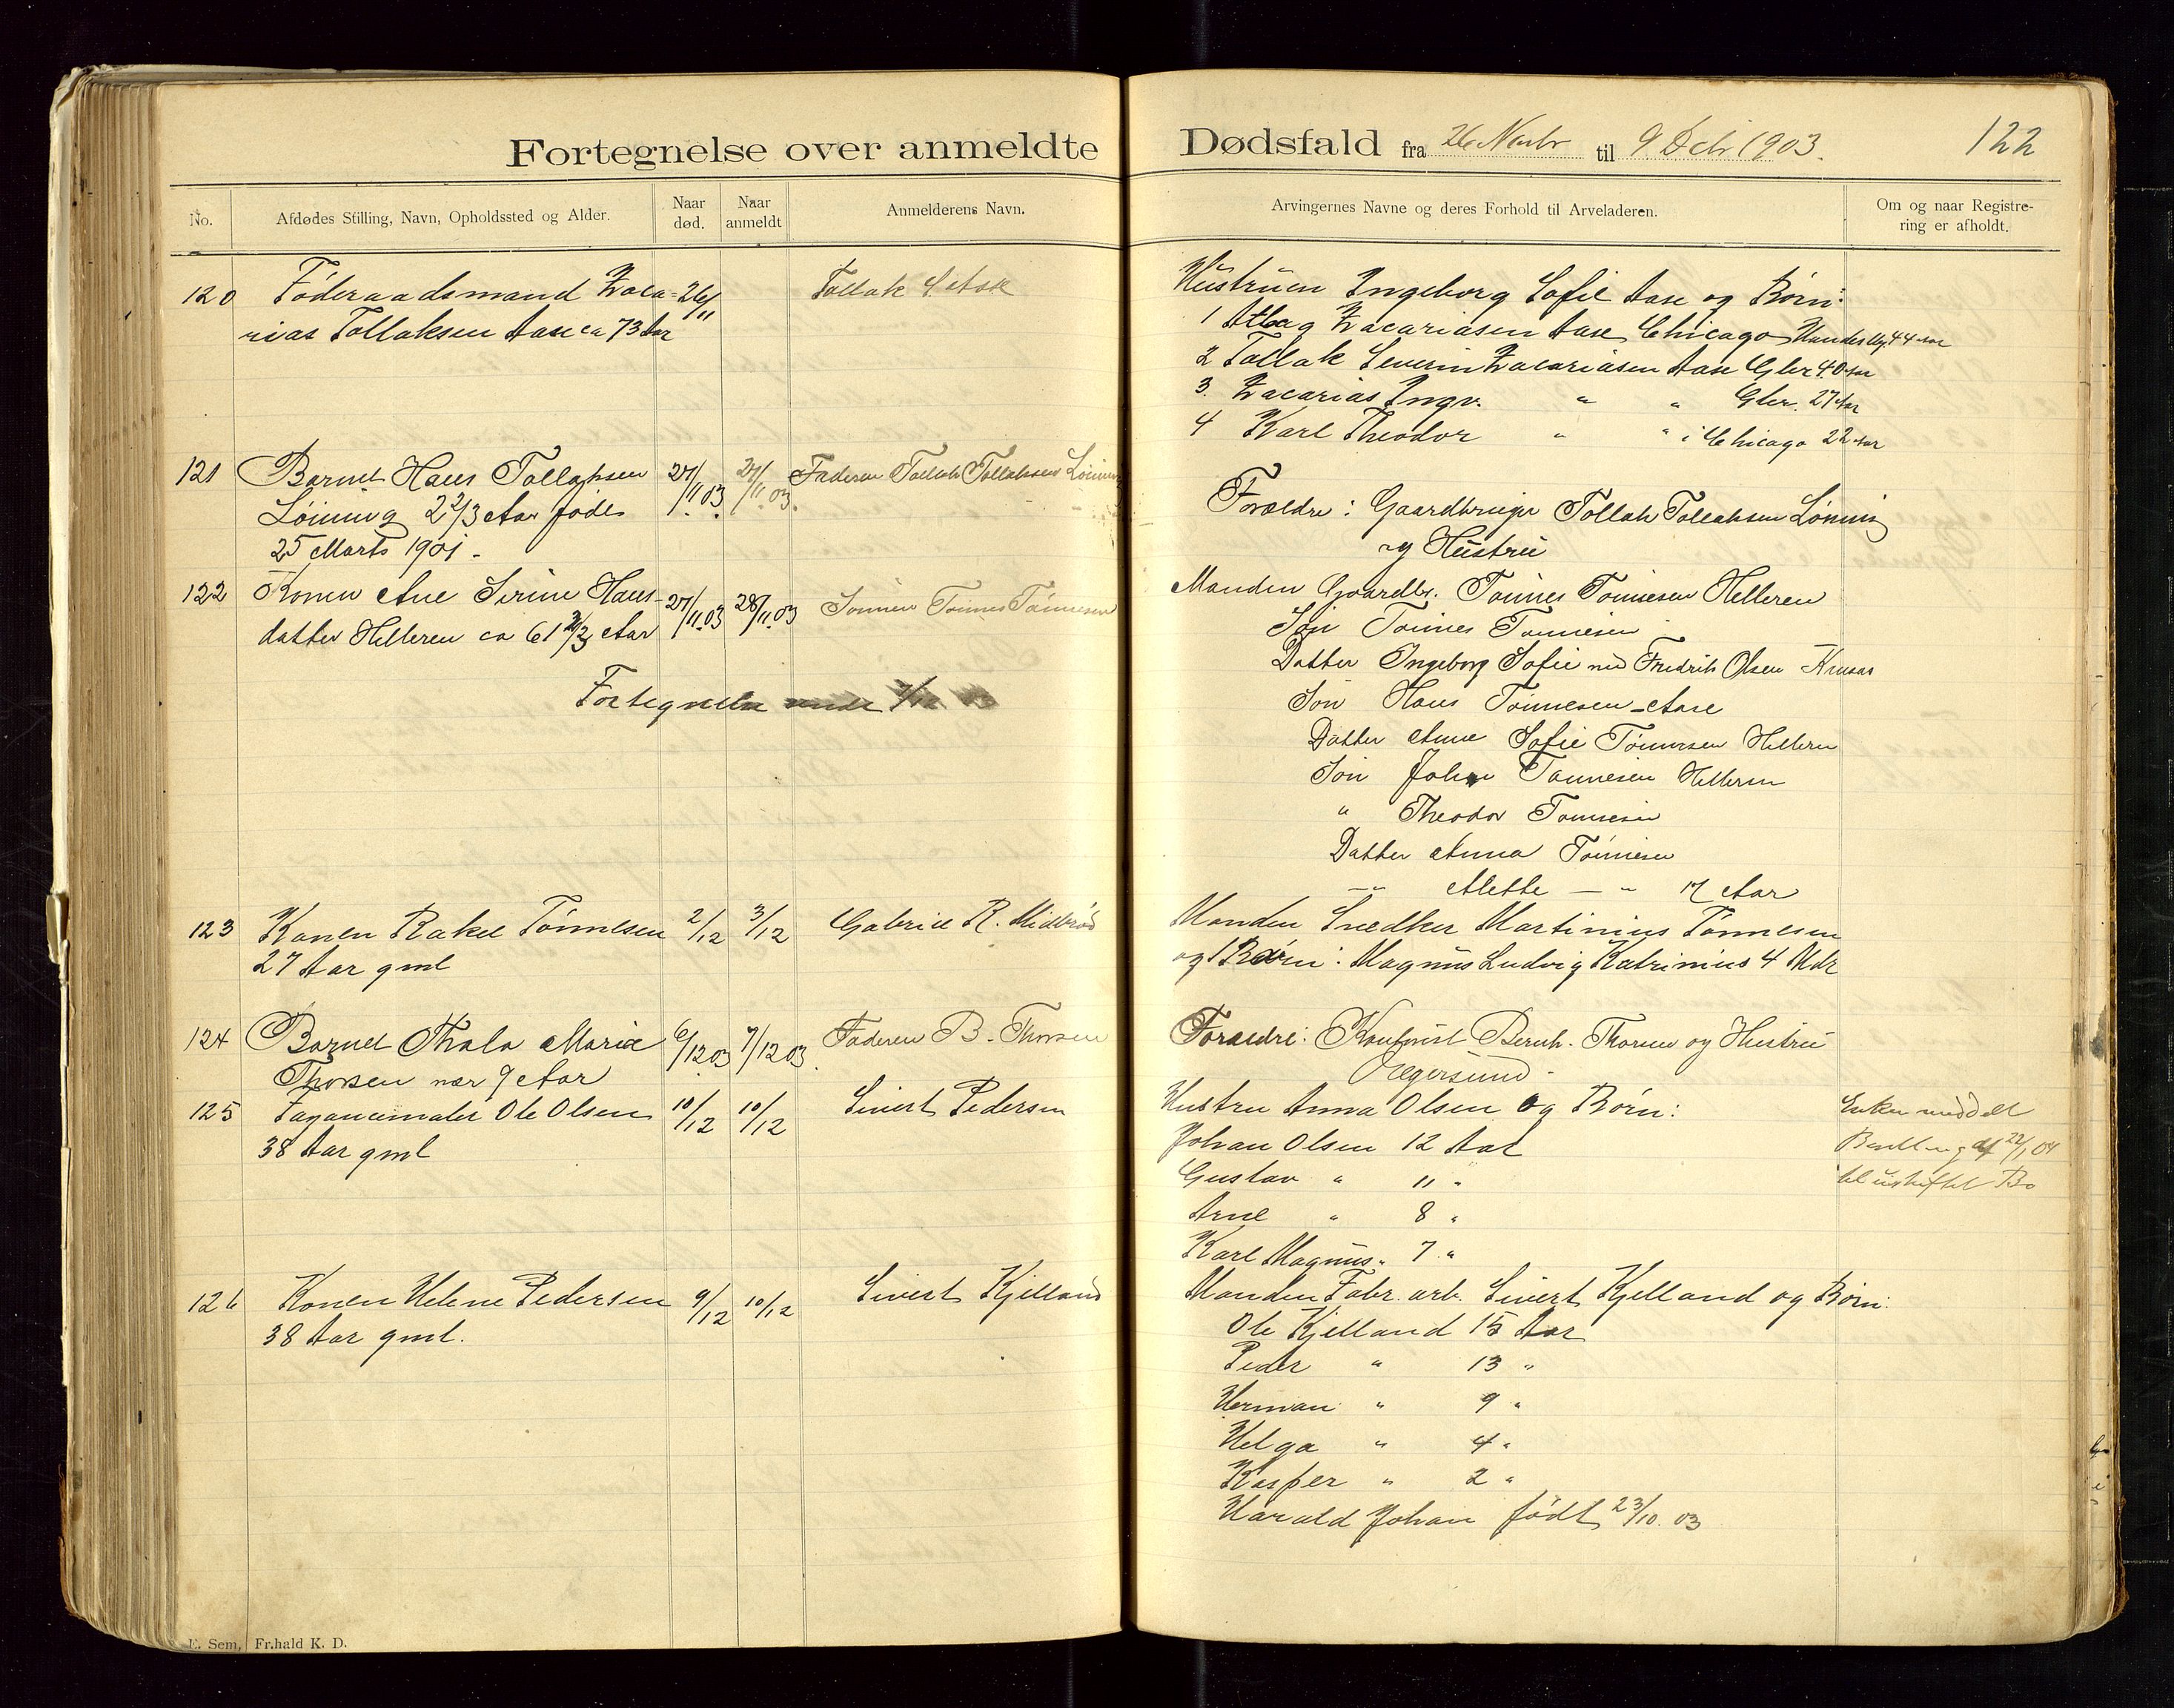 Fortegnelse over anmeldte Dødsfald fra 26 Novbr til 9 Dcbr 1903.
122
No.
Afdødes Stilling, Navn, Opholdssted og Alder.
Naar død.
Naar anmeldt
Anmelderens Navn.
Arvingernes Navne og deres Forhold til Arveladeren.
Om og naar Registre-
ring er afholdt.
120 Føderaadsmand Zaca- 26/11 Tollak
rias Tollaksen Aase ca 73 Aar
Hustruen Ingeborg Sofie Aase og Børn:
1 Zacariasen Aase Chicago 44 Aar
2 Tollak Severin Zacariasen Aase Gbr 40 Aar
3. Zacarias Ingv. " " Gbr. 27 Aar
4 Karl Theodor " " i Chicago 22 Aar
121 Barnet Hans Tollaksen 27/11.03. 27/11 03. Faderen Tollak Tollaksen Lønning
Lønning 2 2/3 Aar født
25 Marts 1901.
Forældre: Gaardbruger Tollak Tollaksen Lønning
og Hustru
122 Konen Ane Serine Hans- 27/11.03 28/11.03 Sønnen Tønnes Tønnesen
datter Helleren ca 61 2/3 Aar
Fortegnelse
Manden Gaardbr. Tønnes Tønnesen Helleren
Søn Tønnes Tønnesen
Datter Ingeborg Sofie med Fredrik Olsen
Søn Hans Tønnesen Aase
Datter Anne Sofie Tønnesen Helleren
Søn Johan Tønnesen Helleren
" Theodor Tønnesen
Datter Anna Tønnesen
—"— Alette —"— 17 Aar
123 Konen Rakel Tønnesen 2/12 3/12 Gabriel R. Midbrød
27 Aar gml
Manden Snedker Martinius Tønnesen
og 1 Barn: Magnus Ludvig Katrinius 4 Mdr
124 Barnet Thala Marie 6/12 03 7/12 03. Faderen B. Thorsen
Thorsen nær 9 Aar
Forældre: Bernh. Thorsen og Hustru
Egersund.
125 Fayancemaler Ole Olsen 10/12 10/12 Sivert Pedersen
38 Aar gml
Hustru Anna Olsen og Børn:
Johan Olsen 12 Aar
Gustav " 11 "
Arne " 8 "
Karl Magnus " 7 "
Enken meddelt
Bevilling af 22/1 04
til uskiftet Bo
126 Konen Helene Pedersen 9/12 10/12 Sivert Kjelland
38 Aar gml.
Manden Fabr. arb. Sivert Kjelland og Børn:
Ole Kjelland 15 Aar
Peder " 13 "
Herman " 9 "
Helga " 4 "
Kasper " 2 "
Harald Johan født 23/10. 03
E. Sem, Fr.hald K. D.